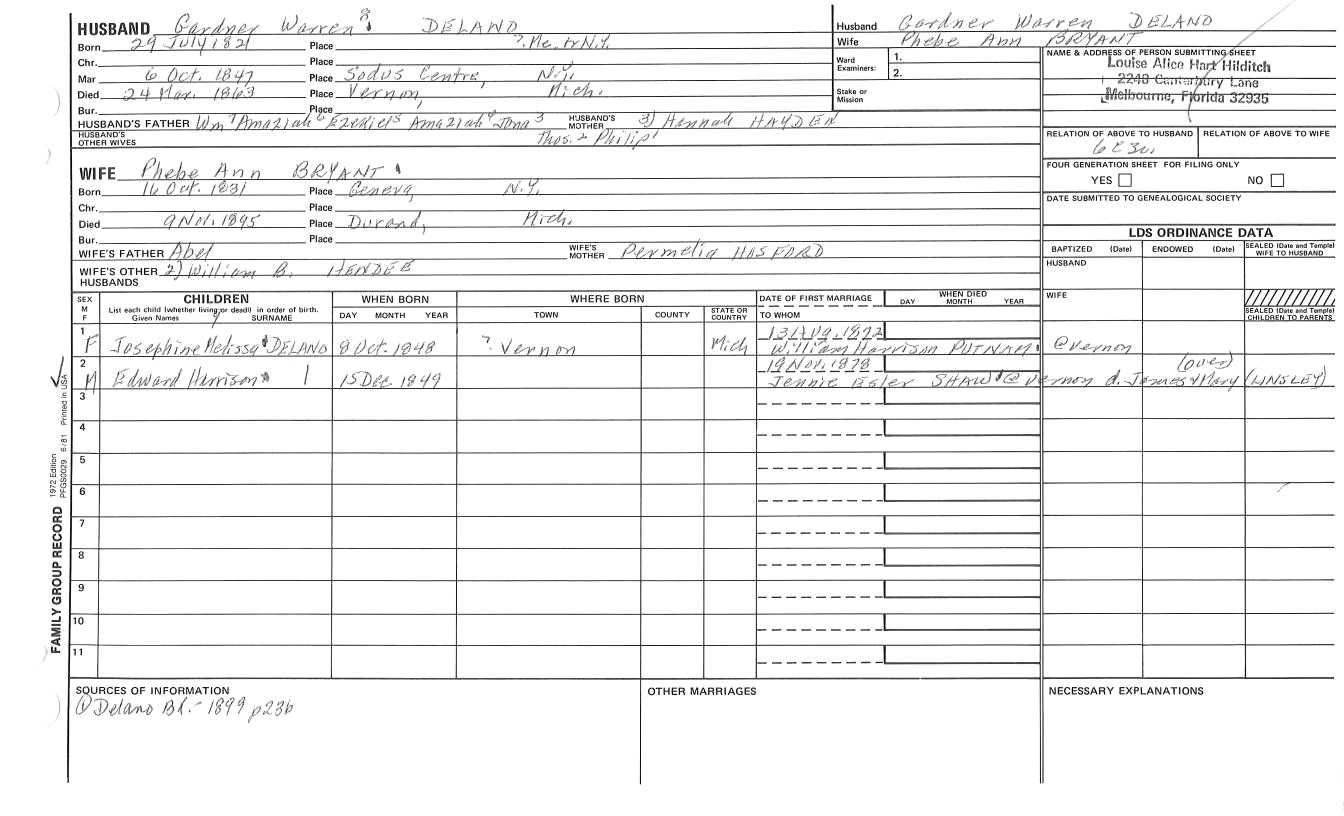 HUSBAND Gardner Warren 8 DELAND
Born 29 July 1821 Place ?. Me. or N.Y.
Chr. Place
Mar 6 Oct. 1847 Place Sodus Centre, N.Y.
Died 24 Mar. 1863 Place Vernon, Mich.
Bur. Place
HUSBAND'S FATHER Wm 7 Amaziah 6 Ezekiel 5 Amaziah 4 Jona 3 HUSBAND'S MOTHER 3) Hannah HAYDEN
HUSBAND'S OTHER WIVES Thos. 2 Philip 1
Husband Gardner Warren DELAND
Wife Phebe Ann BRYANT
Ward Examiners: 1.
2.
Stake or Mission
NAME & ADDRESS OF PERSON SUBMITTING SHEET
Louise Alice Hart Hilditch
2248 Canterbury Lane
Melbourne, Florida 32935
RELATION OF ABOVE TO HUSBAND RELATION OF ABOVE TO WIFE
6C3R
FOUR GENERATION SHEET FOR FILING ONLY
YES NO
DATE SUBMITTED TO GENEALOGICAL SOCIETY
WIFE Phebe Ann BRYANT
Born 16 Oct. 1831 Place Geneva, N.Y.
Chr. Place
Died 9 Nov. 1895 Place Durand, Mich.
Bur. Place
WIFE'S FATHER Abel WIFE'S MOTHER Permelia HASFORD
WIFE'S OTHER HUSBANDS 2) William B. HENDEE
LDS ORDINANCE DATA
BAPTIZED (Date) ENDOWED (Date) SEALED (Date and Temple) WIFE TO HUSBAND
HUSBAND
WIFE
SEALED (Date and Temple) CHILDREN TO PARENTS
SEX M F
CHILDREN
List each child (whether living or dead) in order of birth.
Given Names SURNAME
WHEN BORN
DAY MONTH YEAR
WHERE BORN
TOWN COUNTY STATE OR COUNTRY
DATE OF FIRST MARRIAGE
TO WHOM
WHEN DIED
DAY MONTH YEAR
1 F Josephine Melissa DELAND 8 Oct. 1848 ? Vernon Mich 13 Aug. 1872
William Harrison PUTNAM @ Vernon
2 M Edward Harrison 15 Dec. 1849 19 Nov. 1878 (over)
Jennie Esler SHAW @ Vernon d. James & Mary (LINSLEY)
3
4
5
6
7
8
9
10
11
FAMILY GROUP RECORD 1972 Edition PFGS0029 6/81 Printed in USA
SOURCES OF INFORMATION
① Delano Bk. - 1899 p236
OTHER MARRIAGES
NECESSARY EXPLANATIONS